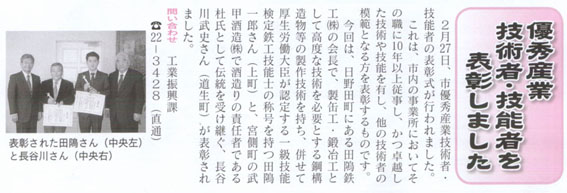 優秀産業
技術者・技能者を
表彰しました
２月27日、市優秀産業技術者・
技能者の表彰式が行われました。
これは、市内の事業所においてそ
の職に10年以上従事し、かつ卓越し
た技術や技能を有し、他の技術者の
模範となる方を表彰するものです。
今回は、日野田町にある田隝鉄
工㈱の会長で、製缶工・鍛冶工と
して高度な技術を必要とする鋼構
造物等の製作技術を持ち、併せて
厚生労働大臣が認定する一級技能
検定鉄工技能士の称号を持つ田隝
一郎さん（上町）と、宮側町の武
甲酒造㈱で酒造りの責任者である
杜氏として伝統を受け継ぐ、長谷
川武史さん（道生町）が表彰され
ました。
問い合わせ　工業振興課
☎22－3428（直通）
表彰された田隝さん（中央左）
と長谷川さん（中央右）